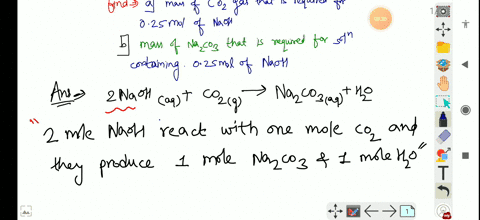 find → a) mass of CO₂ gas that is required for
0.25 mol of NaOH
b) mass of Na₂CO₃ that is required for solⁿ
containing 0.25 mol of NaOH
Ans → 2NaOH (aq) + CO₂(g) → Na₂CO₃(aq) + H₂O
" 2 mole NaOH react with one mole CO₂ and
they produce 1 mole Na₂CO₃ & 1 mole H₂O "
1